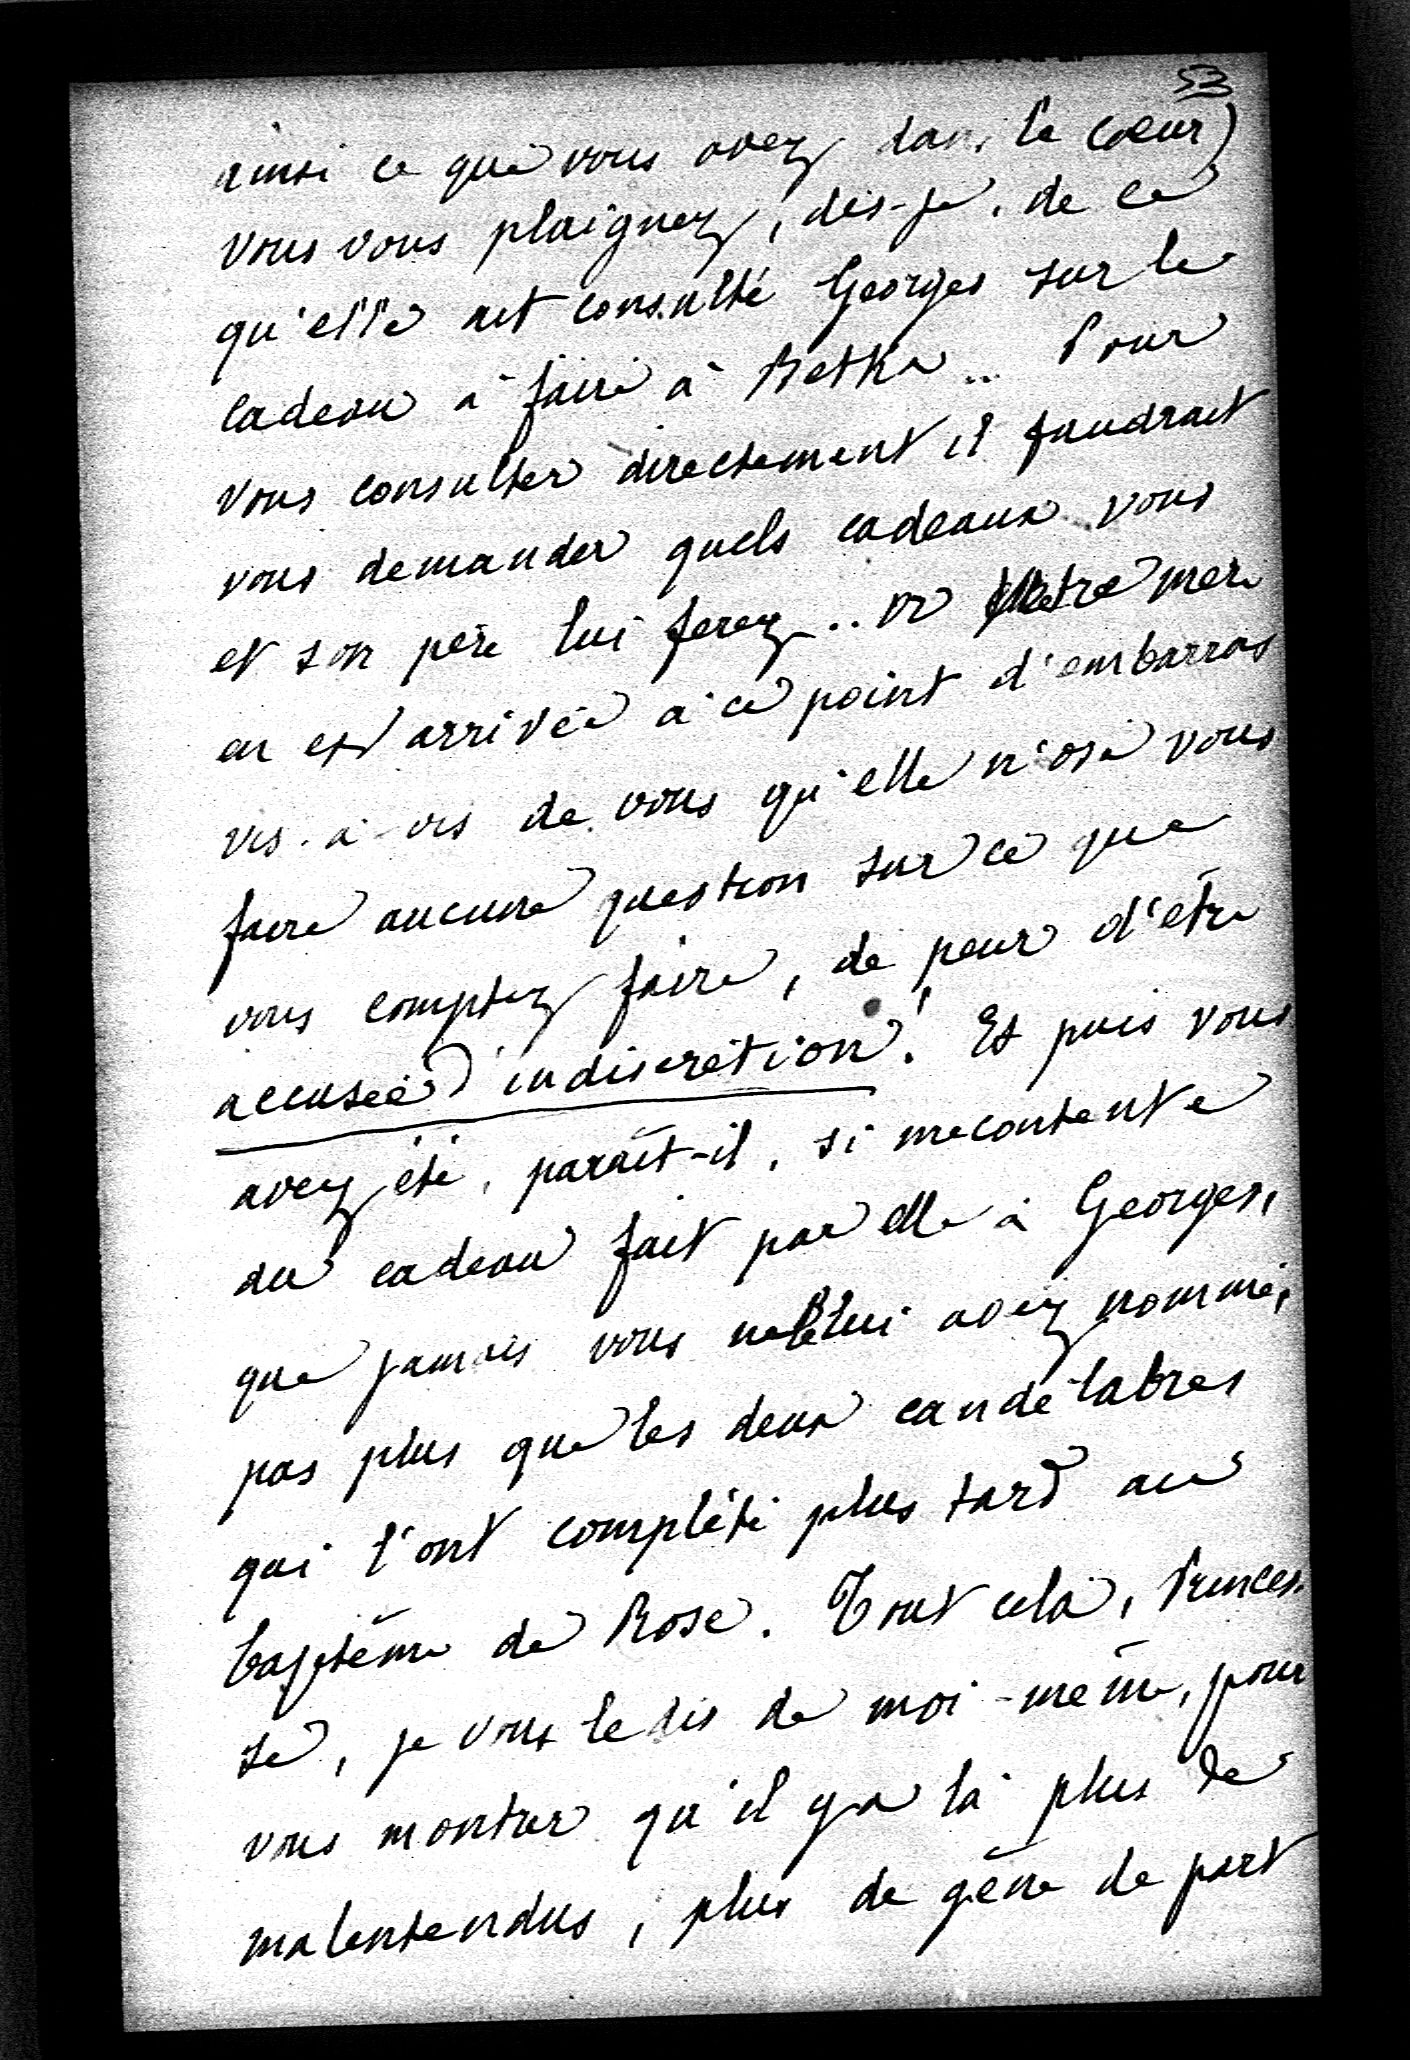 53
ainsi ce que vous avez dans le cœur)
vous vous plaignez, dis-je, de ce
qu'elle ait consulté Georges sur le
cadeau à faire à Betka... Pour
vous consulter directement il faudrait
vous demander quels cadeaux vous
et son père lui ferez... Or Votre mère
en est arrivée à ce point d'embarras
vis-à-vis de vous qu'elle n'ose vous
faire aucune question sur ce que
vous comptez faire, de peur d'être
accusée d'indiscrétion! Et puis vous
avez été, paraît-il, si mécontente
du cadeau fait par elle à Georges,
que jamais vous ne le lui avez nommé,
pas plus que les deux candélabres
qui l'ont complété plus tard au
baptême de Rose. Tout cela, Princes-
se, je vous le dis de moi-même, pour
vous montrer qu'il y a là plus de
malentendus, plus de gêne de part